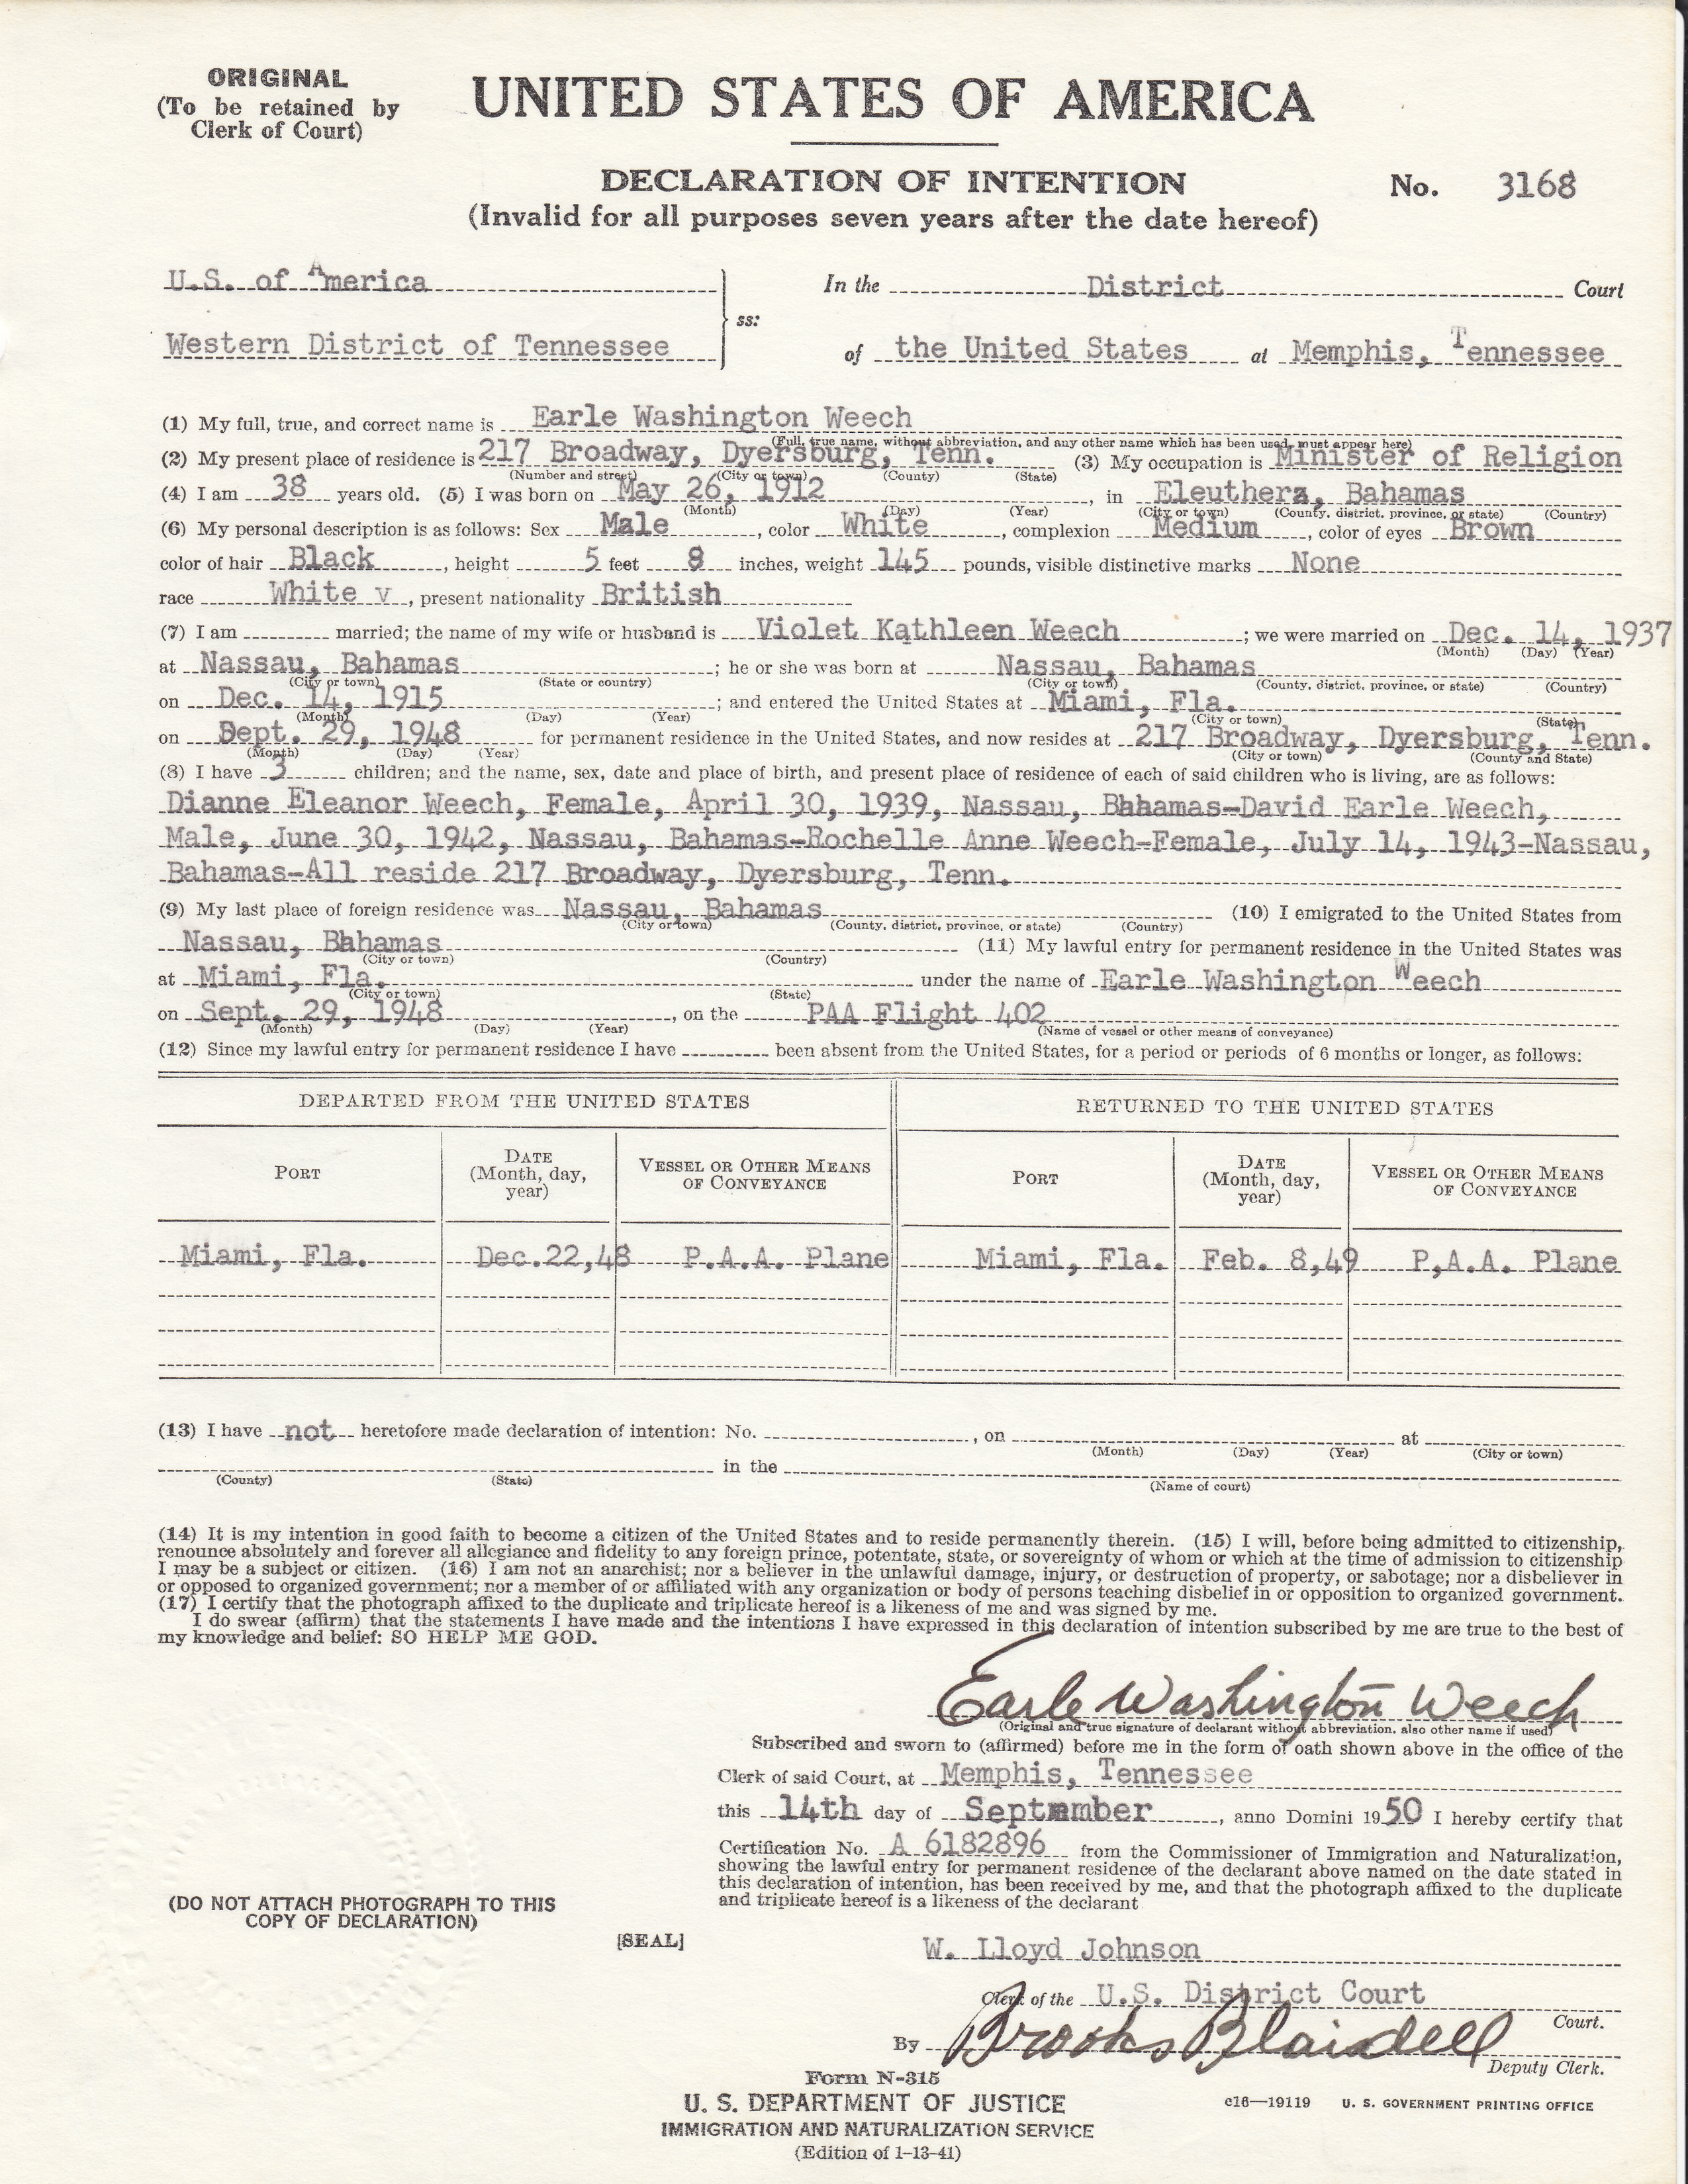 ORIGINAL
(To be retained by
Clerk of Court)
UNITED STATES OF AMERICA
DECLARATION OF INTENTION
(Invalid for all purposes seven years after the date hereof)
No. 3168
U.S. of America
Western District of Tennessee
ss:
In the District Court
of the United States at Memphis, Tennessee
(1) My full, true, and correct name is Earle Washington Weech
(Full, true name, without abbreviation, and any other name which has been used, must appear here)
(2) My present place of residence is 217 Broadway, Dyersburg, Tenn. (3) My occupation is Minister of Religion
(Number and street) (City or town) (County) (State)
(4) I am 38 years old. (5) I was born on May 26, 1912, in Eleuthera, Bahamas
(Month) (Day) (Year) (City or town) (County, district, province, or state) (Country)
(6) My personal description is as follows: Sex Male, color White, complexion Medium, color of eyes Brown
color of hair Black, height 5 feet 8 inches, weight 145 pounds, visible distinctive marks None
race White v, present nationality British
(7) I am married; the name of my wife or husband is Violet Kathleen Weech; we were married on Dec. 14, 1937
(Month) (Day) (Year)
at Nassau, Bahamas; he or she was born at Nassau, Bahamas
(City or town) (State or country) (City or town) (County, district, province, or state) (Country)
on Dec. 14, 1915; and entered the United States at Miami, Fla.
(Month) (Day) (Year) (City or town) (State)
on Sept. 29, 1948 for permanent residence in the United States, and now resides at 217 Broadway, Dyersburg, Tenn.
(Month) (Day) (Year) (City or town) (County and State)
(8) I have 3 children; and the name, sex, date and place of birth, and present place of residence of each of said children who is living, are as follows:
Dianne Eleanor Weech, Female, April 30, 1939, Nassau, Bahamas-David Earle Weech,
Male, June 30, 1942, Nassau, Bahamas-Rochelle Anne Weech-Female, July 14, 1943-Nassau,
Bahamas-All reside 217 Broadway, Dyersburg, Tenn.
(9) My last place of foreign residence was Nassau, Bahamas (10) I emigrated to the United States from
(City or town) (County, district, province, or state) (Country)
Nassau, Bahamas (11) My lawful entry for permanent residence in the United States was
(City or town) (Country)
at Miami, Fla. under the name of Earle Washington Weech
(City or town) (State)
on Sept. 29, 1948, on the PAA Flight 402
(Month) (Day) (Year) (Name of vessel or other means of conveyance)
(12) Since my lawful entry for permanent residence I have been absent from the United States, for a period or periods of 6 months or longer, as follows:
DEPARTED FROM THE UNITED STATES RETURNED TO THE UNITED STATES
PORT DATE (Month, day, year) VESSEL OR OTHER MEANS OF CONVEYANCE PORT DATE (Month, day, year) VESSEL OR OTHER MEANS OF CONVEYANCE
Miami, Fla. Dec.22,48 P.A.A. Plane Miami, Fla. Feb. 8,49 P,A.A. Plane
(13) I have not heretofore made declaration of intention: No. , on at
(Month) (Day) (Year) (City or town)
in the
(County) (State) (Name of court)
(14) It is my intention in good faith to become a citizen of the United States and to reside permanently therein. (15) I will, before being admitted to citizenship,
renounce absolutely and forever all allegiance and fidelity to any foreign prince, potentate, state, or sovereignty of whom or which at the time of admission to citizenship
I may be a subject or citizen. (16) I am not an anarchist; nor a believer in the unlawful damage, injury, or destruction of property, or sabotage; nor a disbeliever in
or opposed to organized government; nor a member of or affiliated with any organization or body of persons teaching disbelief in or opposition to organized government.
(17) I certify that the photograph affixed to the duplicate and triplicate hereof is a likeness of me and was signed by me.
I do swear (affirm) that the statements I have made and the intentions I have expressed in this declaration of intention subscribed by me are true to the best of
my knowledge and belief: SO HELP ME GOD.
Earle Washington Weech
(Original and true signature of declarant without abbreviation, also other name if used)
Subscribed and sworn to (affirmed) before me in the form of oath shown above in the office of the
Clerk of said Court, at Memphis, Tennessee
this 14th day of September, anno Domini 1950 I hereby certify that
Certification No. A 6182896 from the Commissioner of Immigration and Naturalization,
showing the lawful entry for permanent residence of the declarant above named on the date stated in
this declaration of intention, has been received by me, and that the photograph affixed to the duplicate
and triplicate hereof is a likeness of the declarant
(DO NOT ATTACH PHOTOGRAPH TO THIS
COPY OF DECLARATION)
[SEAL]
W. Lloyd Johnson
Clerk of the U.S. District Court
Court.
By Brooks Blaisdell
Deputy Clerk.
Form N-315
U. S. DEPARTMENT OF JUSTICE
IMMIGRATION AND NATURALIZATION SERVICE
(Edition of 1-13-41)
c16—19119 U. S. GOVERNMENT PRINTING OFFICE